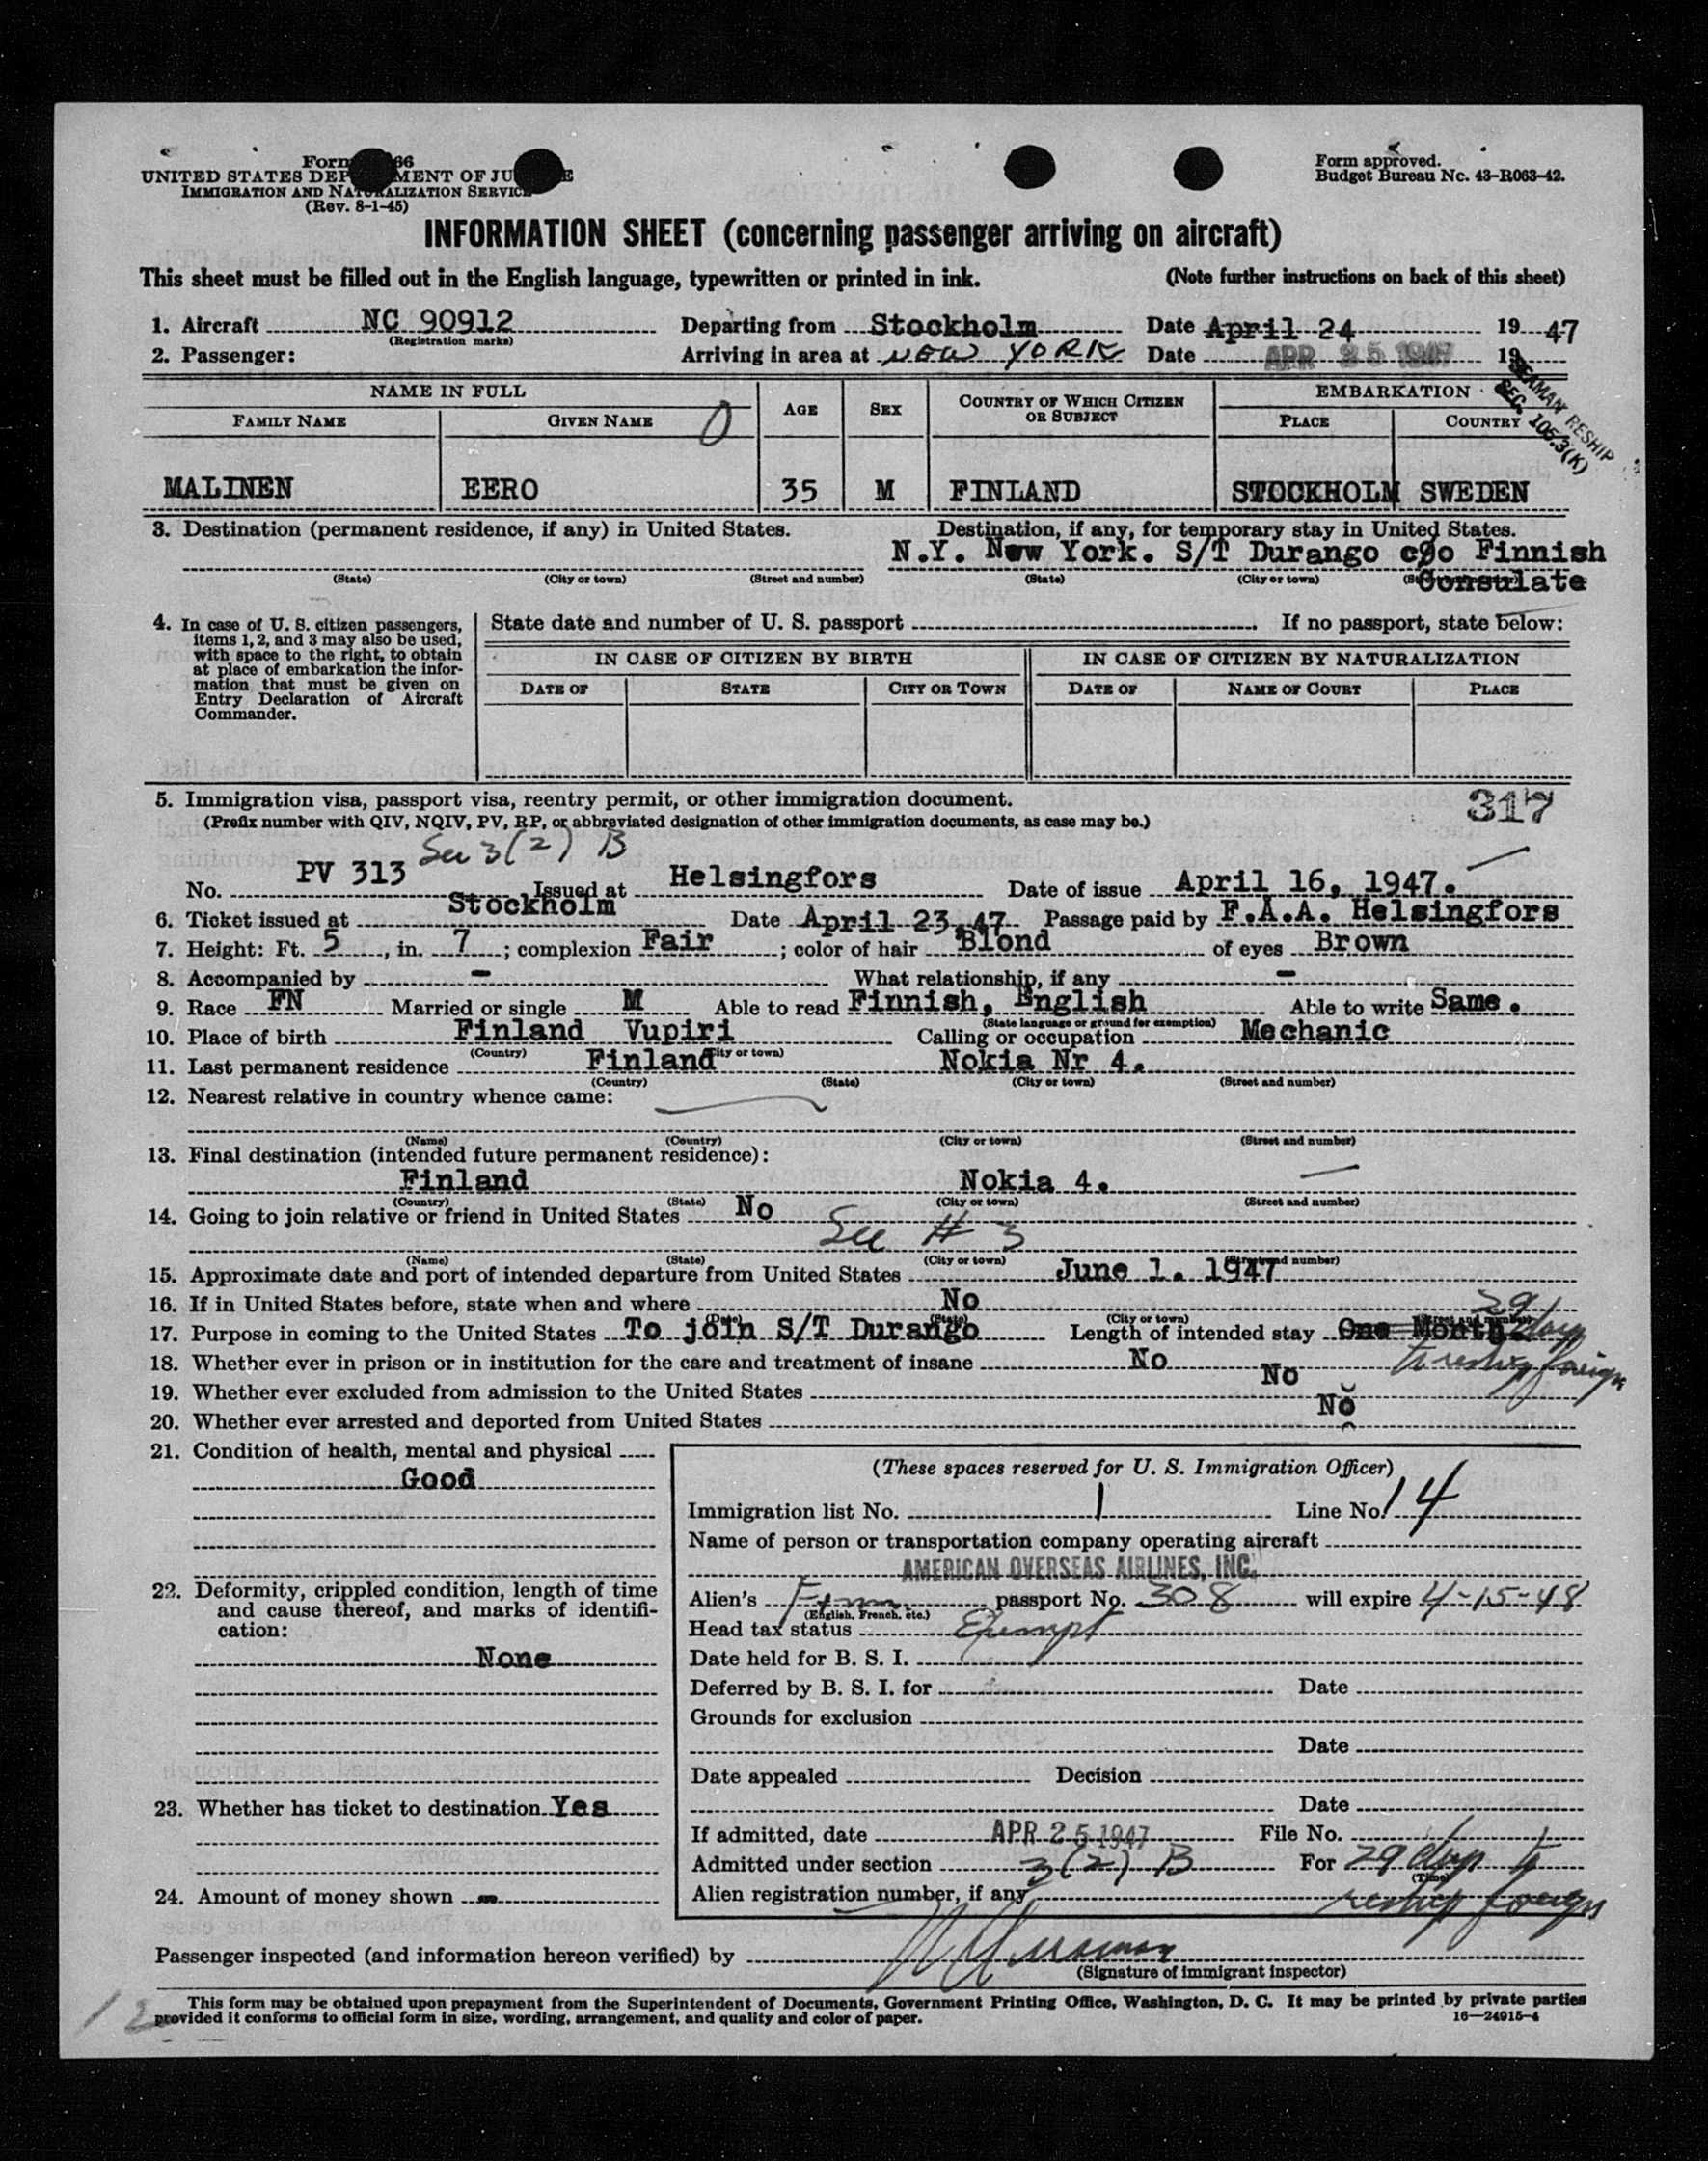 Form 66
UNITED STATES DEP MENT OF JU E
IMMIGRATION AND NATURALIZATION SERVICE
(Rev. 8-1-45)
Form approved.
Budget Bureau No. 43-R063-42.
INFORMATION SHEET (concerning passenger arriving on aircraft)
This sheet must be filled out in the English language, typewritten or printed in ink. (Note further instructions on back of this sheet)
1. Aircraft NC 90912 Departing from Stockholm Date April 24 19 47
(Registration marks)
2. Passenger: Arriving in area at NEW YORK Date APR 25 1947 19
SEAMAN RESHIP
SEC. 105.3(K)
NAME IN FULL AGE SEX COUNTRY OF WHICH CITIZEN OR SUBJECT EMBARKATION
FAMILY NAME GIVEN NAME PLACE COUNTRY
0
MALINEN EERO 35 M FINLAND STOCKHOLM SWEDEN
3. Destination (permanent residence, if any) in United States. Destination, if any, for temporary stay in United States.
N.Y. New York. S/T Durango c/o Finnish
Consulate
(State) (City or town) (Street and number) (State) (City or town)
4. In case of U. S. citizen passengers, items 1, 2, and 3 may also be used, with space to the right, to obtain at place of embarkation the information that must be given on Entry Declaration of Aircraft Commander.
State date and number of U. S. passport If no passport, state below:
IN CASE OF CITIZEN BY BIRTH IN CASE OF CITIZEN BY NATURALIZATION
DATE OF STATE CITY OR TOWN DATE OF NAME OF COURT PLACE
5. Immigration visa, passport visa, reentry permit, or other immigration document. 317
(Prefix number with QIV, NQIV, PV, RP, or abbreviated designation of other immigration documents, as case may be.)
Sec 3(2) B
No. PV 313 Issued at Helsingfors Date of issue April 16, 1947.
6. Ticket issued at Stockholm Date April 23, 47 Passage paid by F.A.A. Helsingfors
7. Height: Ft. 5, in. 7; complexion Fair; color of hair Blond of eyes Brown
8. Accompanied by - What relationship, if any -
9. Race FN Married or single M Able to read Finnish, English Able to write Same.
(State language or ground for exemption)
10. Place of birth Finland Vupiri Calling or occupation Mechanic
(Country) (City or town)
11. Last permanent residence Finland Nokia Nr 4.
(Country) (State) (City or town) (Street and number)
12. Nearest relative in country whence came:
(Name) (Country) (City or town) (Street and number)
13. Final destination (intended future permanent residence):
Finland Nokia 4.
(Country) (State) (City or town) (Street and number)
14. Going to join relative or friend in United States No
See # 3
(Name) (State) (City or town) (Street and number)
15. Approximate date and port of intended departure from United States June 1. 1947
16. If in United States before, state when and where No
(Date) (State) (City or town) (Street and number)
17. Purpose in coming to the United States To join S/T Durango Length of intended stay One Month. 29 days
to reship foreign
18. Whether ever in prison or in institution for the care and treatment of insane No
19. Whether ever excluded from admission to the United States No
20. Whether ever arrested and deported from United States No
21. Condition of health, mental and physical
Good
22. Deformity, crippled condition, length of time and cause thereof, and marks of identification:
None
23. Whether has ticket to destination Yes
24. Amount of money shown -
(These spaces reserved for U. S. Immigration Officer)
Immigration list No. 1 Line No. 14
Name of person or transportation company operating aircraft
AMERICAN OVERSEAS AIRLINES, INC.
Alien's Finn. passport No. 308 will expire 4-15-48
(English, French, etc.)
Head tax status Exempt
Date held for B. S. I.
Deferred by B. S. I. for Date
Grounds for exclusion
Date
Date appealed Decision
Date
If admitted, date APR 25 1947 File No.
Admitted under section 3(2) B For 29 days to
(Time)
Alien registration number, if any reship foreign
Passenger inspected (and information hereon verified) by
(Signature of immigrant inspector)
This form may be obtained upon prepayment from the Superintendent of Documents, Government Printing Office, Washington, D. C. It may be printed by private parties
provided it conforms to official form in size, wording, arrangement, and quality and color of paper. 16—24915-4
12